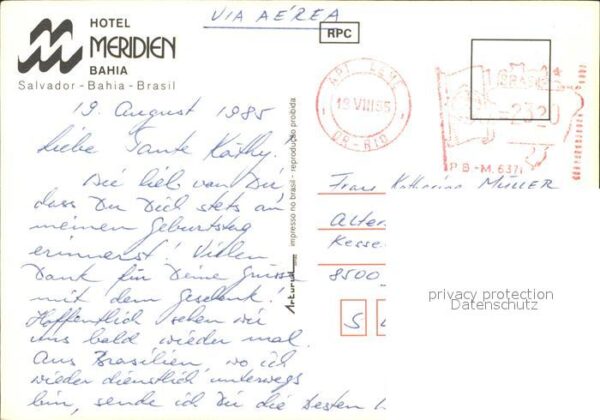 VIA AÉREA
HOTEL
MERIDIEN
BAHIA
Salvador - Bahia - Brasil
RPC
19. August 1985
Liebe Tante Käthy.
Wie lieb von Dir,
dass Du Dich stets an
meinen Geburtstag
erinnerst! Vielen
Dank für Deine Grüsse
mit dem Geschenk!
Hoffentlich sehen wir
uns bald wieder mal.
Aus Brasilien, wo ich
wieder dienstlich unterwegs
bin, sende ich Dir die besten
Arturo
impresso no brasil - reprodução proibida
19 VIII 85
DR-RIO
BRASIL
2320
P B - M. 6371
Frau Katharina MÜLLER
Alte
Kesse
8500
privacy protection
Datenschutz